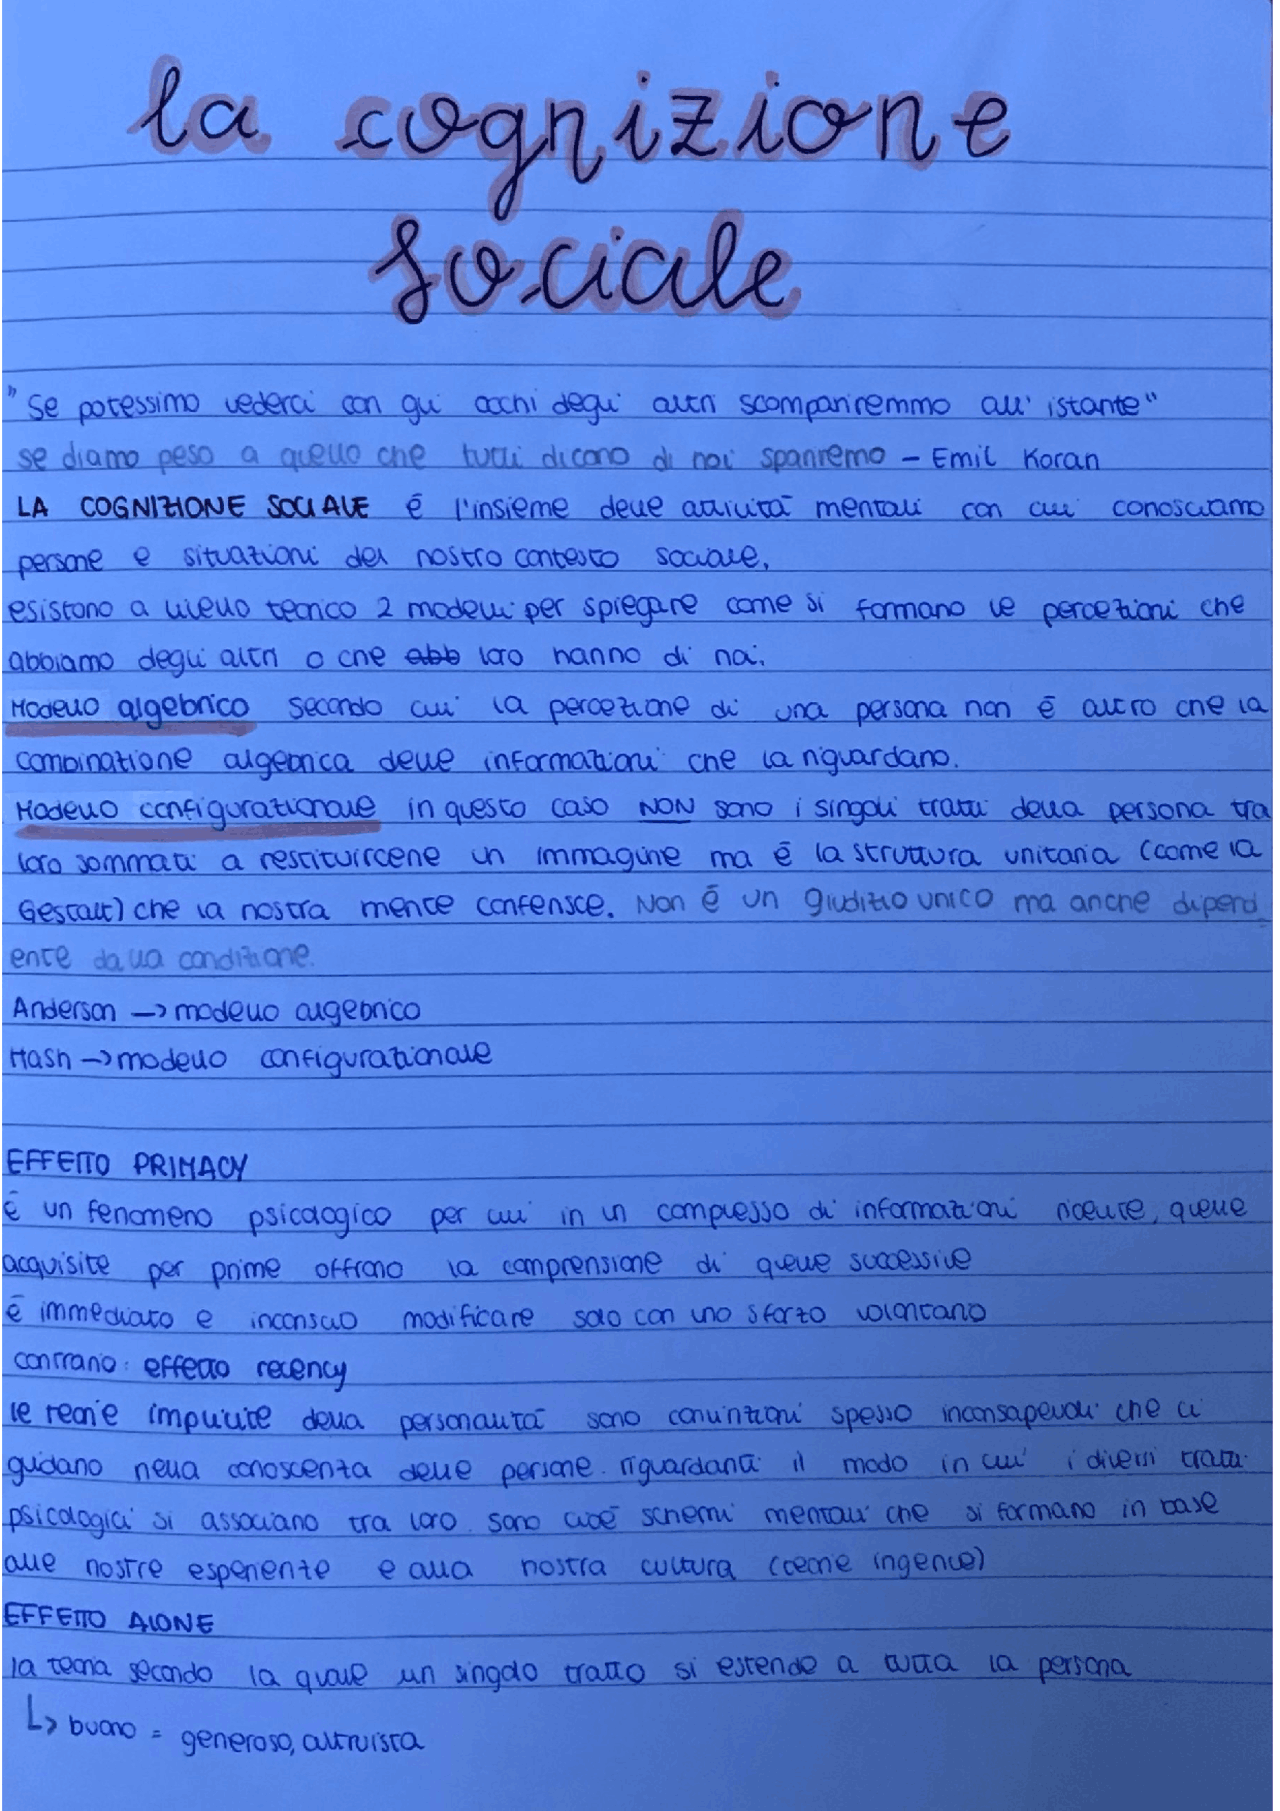 la cognizione
sociale
"se potessimo vederci con gli occhi degli altri scompariremmo all' istante"
se diamo peso a quello che tutti dicono di noi spariremo - Emil Koran
LA COGNIZIONE SOCIALE é l'insieme delle attività mentali con cui conosciamo
persone e situazioni del nostro contesto sociale.
esistono a livello teorico 2 modelli per spiegare come si formano le percezioni che
abbiamo degli altri o che abb loro hanno di noi.
Modello algebrico secondo cui la percezione di una persona non é altro che la
combinazione algebrica delle informazioni che la riguardano.
Modello configurazionale in questo caso NON sono i singoli tratti della persona tra
loro sommati a restituircene un immagine ma é la struttura unitaria (come la
Gestalt) che la nostra mente conferisce. Non é un giudizio unico ma anche dipend
ente dalla condizione.
Anderson -> modello algebrico
Hash -> modello configurazionale
EFFETTO PRIMACY
é un fenomeno psicologico per cui in un complesso di informazioni ricevute, quelle
acquisite per prime offrono la comprensione di quelle successive
é immediato e inconscio modificare solo con uno sforzo volontario
contrario: effetto recency
le teorie implicite della personalità sono convinzioni spesso inconsapevoli che ci
guidano nella conoscenza delle persone. riguardanti il modo in cui i diversi tratti
psicologici si associano tra loro. sono cioé schemi mentali che si formano in base
alle nostre esperienze e alla nostra cultura (teorie ingenue)
EFFETTO ALONE
la teoria secondo la quale un singolo tratto si estende a tutta la persona
↳ buono = generoso, altruista